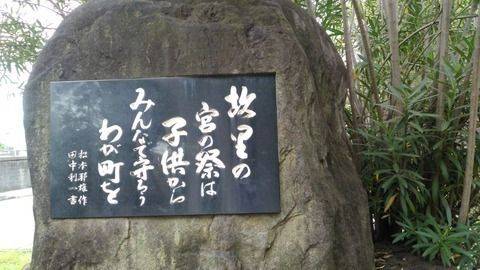 故里の
宮の祭は
子供から
みんなで守ろう
わが町を
松本邦雄作
田中利一書